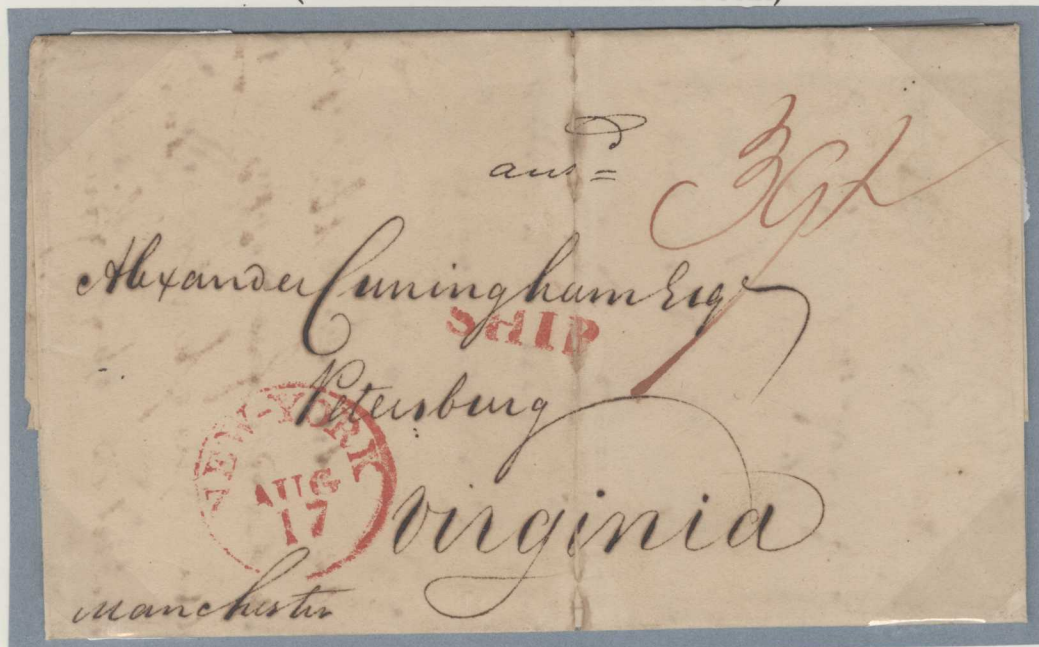 ansd
39½
Alexander Cuningham Esqr
SHIP
Petersburg
NEW-YORK
AUG
17
Virginia
Manchester